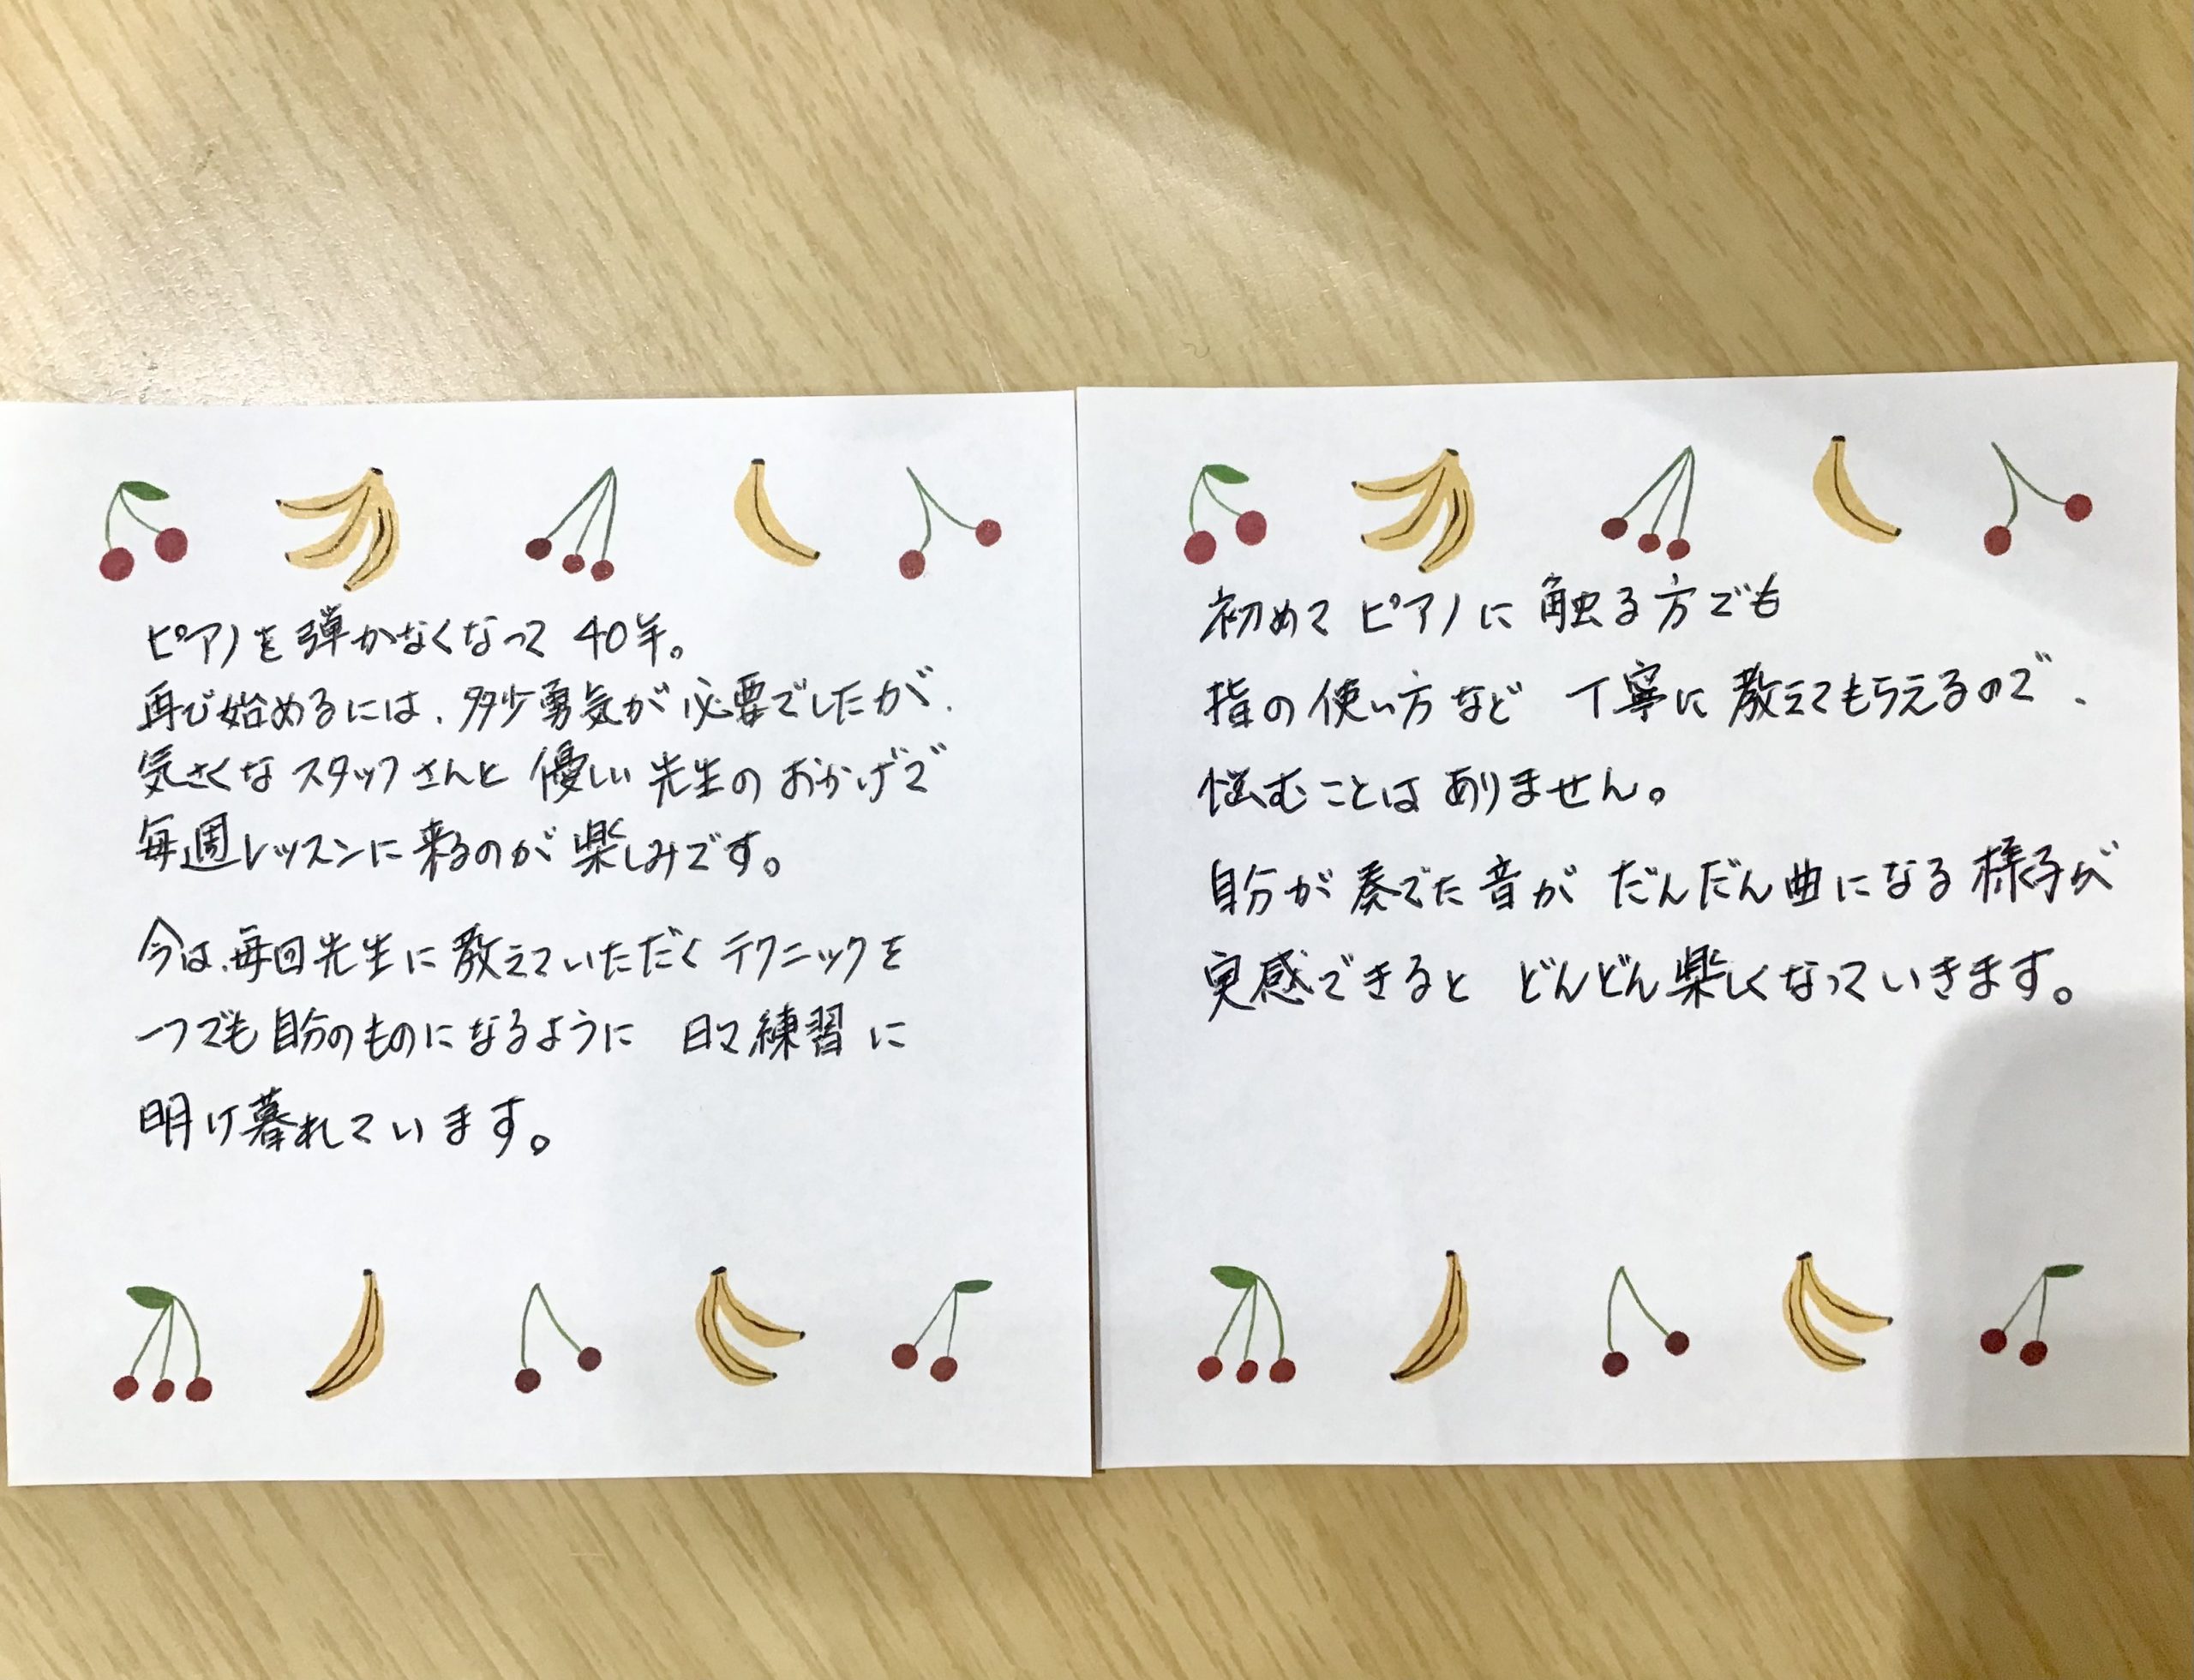 ピアノを弾かなくなって 40年。
再び始めるには、多少勇気が必要でしたが、
気さくな スタッフさんと 優しい 先生の おかげで
毎週レッスンに来るのが 楽しみです。
今は、毎回先生に 教えていただく テクニックを
一つでも 自分のものになるように 日々練習に
明け暮れています。
初めて ピアノに 触る方でも
指の 使い方など 丁寧に 教えてもらえるので、
悩むことは ありません。
自分が 奏でた 音が だんだん曲になる 様子が
実感できると どんどん楽しくなっていきます。